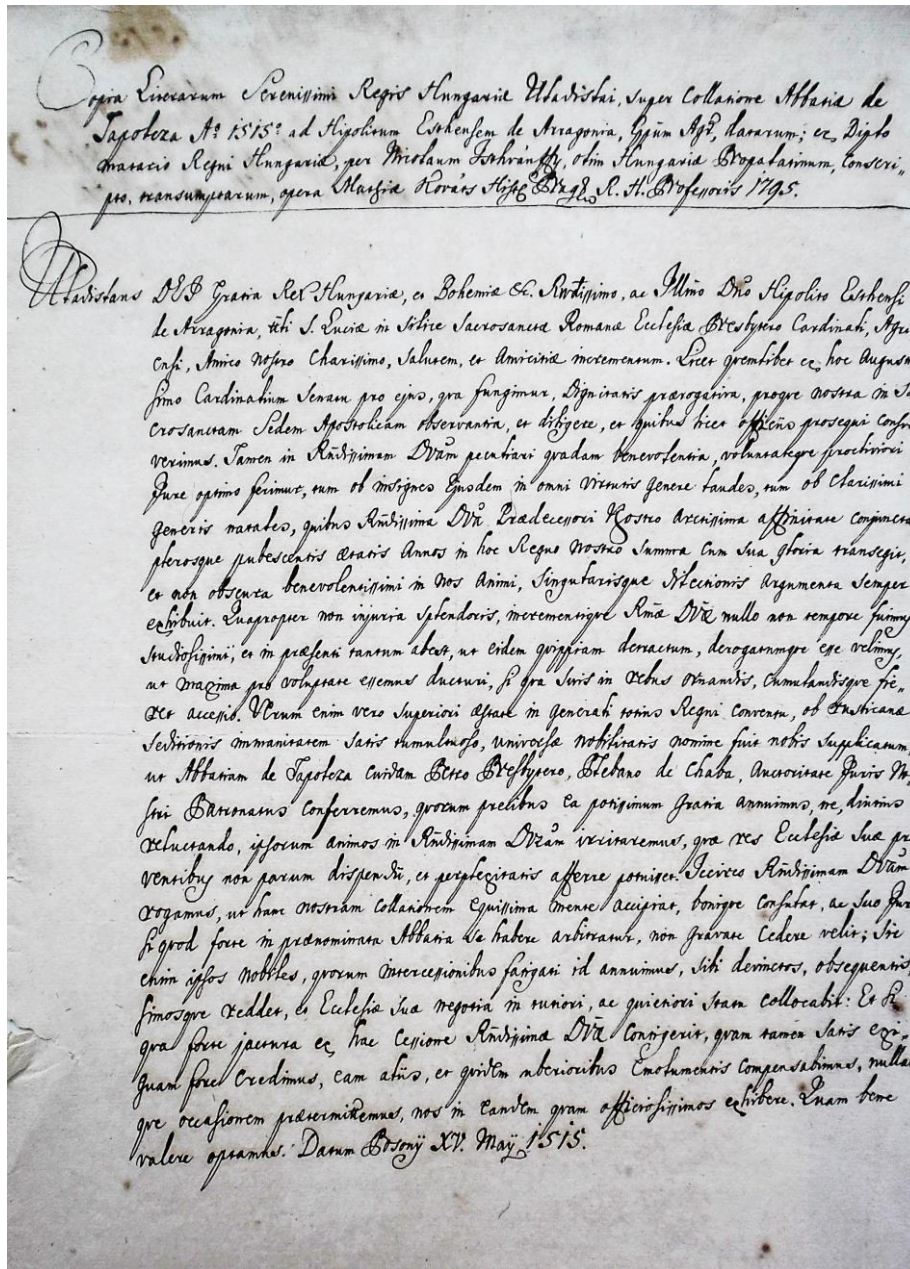 Copia Literarum Serenissimi Regis Hungariæ Uladislai, super Collatione Abbatiæ de
Tapolcza Aº 1515º ad Hipolitum Esthensem de Arragonia, Eppum Agr̃, datarum; ex Diplo
matario Regni Hungariæ, per Nicolaum Isthvánffy, olim Hungariæ Propalatinum, conscri„
pto, transumptarum, opera Mathiæ Kováts Hist R. H. Professoris 1795.
Uladislaus DEI Gratia Rex Hungariæ, et Bohemiæ &c. Rvdissimo, ac Illmo Dno Hipolito Esthensi
de Arragonia, titi S. Luciæ in Silice Sacrosanctæ Romanæ Ecclesiæ Presbytero Cardinali, Agri
ensi, Amico Nostro Charissimo, Salutem, et Amicitiæ incrementum. Licet quemlibet ex hoc Augustis
simo Cardinalium Senatu pro ejus, qua fungimur, Dignitatis prærogativa, proqve nostra in Sa
crosanctam Sedem Apostolicam observantia, et diligere, et quibus licet officiis prosequi consve
verimus. Tamen in Rñdissimam Dvãm peculiari quadam benevolentia, voluntateqve procliviori
Jure optimo ferimur, tum ob insignes Ejusdem in omni Virtutis genere laudes, tum ob Clarissimi
generis natales, quibus Rñdissima Dvã Prædecessori Nostro Arctissima affinitate conjuncta
plerosque pubescentis ætatis Annos in hoc Regno Nostro Summa cum Sua gloria transegit,
et non obscura benevolentissimi in Nos Animi, Singularisque dilectionis Argumenta Semper
exhibuit. Quapropter non injuria Splendoris, incrementiqve Rmæ Dvæ nullo non tempore fuimus
Studiosissimi, et in præsenti tantum abest, ut eidem quippiam detractum, derogatumqve esse velimus,
ut maxima pro voluptate essemus ducturi, si qva Suis in rebus ornandis, cumulandisqve fie„
ret accessio. Verum enim vero Superiori æstate in generali totius Regni conventu, ob rusticanæ
Seditionis immanitatem satis tumultuoso, universæ nobilitatis nomine fuit nobis Supplicatum,
ut Abbatiam de Tapolcza cuidam Petro Presbytero, Plebano de Chaba, Auctoritate Juris No„
stri Patronatus conferremus, qvorum precibus ea potissimum gratia annuimus, ne, diutius
reluctando, ipsorum animos in Rñdissimam Dvãm irritaremus, qvæ res Ecclesiæ Suæ pro
ventibus non parum dispendii, et perplexitatis afferre potuisset. Iccirco Rñdissimam Dvãm
rogamus, ut hanc nostram collationem Equissima mente accipiat, boniqve consulat, ac Suo Juri
Si qvod forte in prænominata Abbatia se habere arbitratur, non gravate Cedere velit; Sic
enim ipsos Nobiles, qvorum intercessionibus fatigati id annuimus, Sibi devinctos, obsequentis„
simosqve reddet, et Ecclesiæ Suæ negotia in tutiori, ac quietiori Statu collocabit: Et Si
qva forte jactura ex hac Cessione Rñdissimæ Dvæ Contigerit, qvam tamen Satis exi„
guam fore Credimus, eam aliis, et qvidem uberioribus Emolumentis compensabimus, nullam
qve occasionem prætermittemus, nos in Eandem qvam officiosissimos exhibere. Quam bene
valere optamus. Datum Posonij XV. Maij 1515.